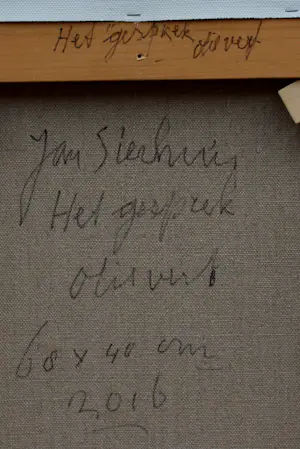 Het gesprek olieverf
Jan Sierhuis
Het gesprek
olieverf
68 x 40 cm
2016